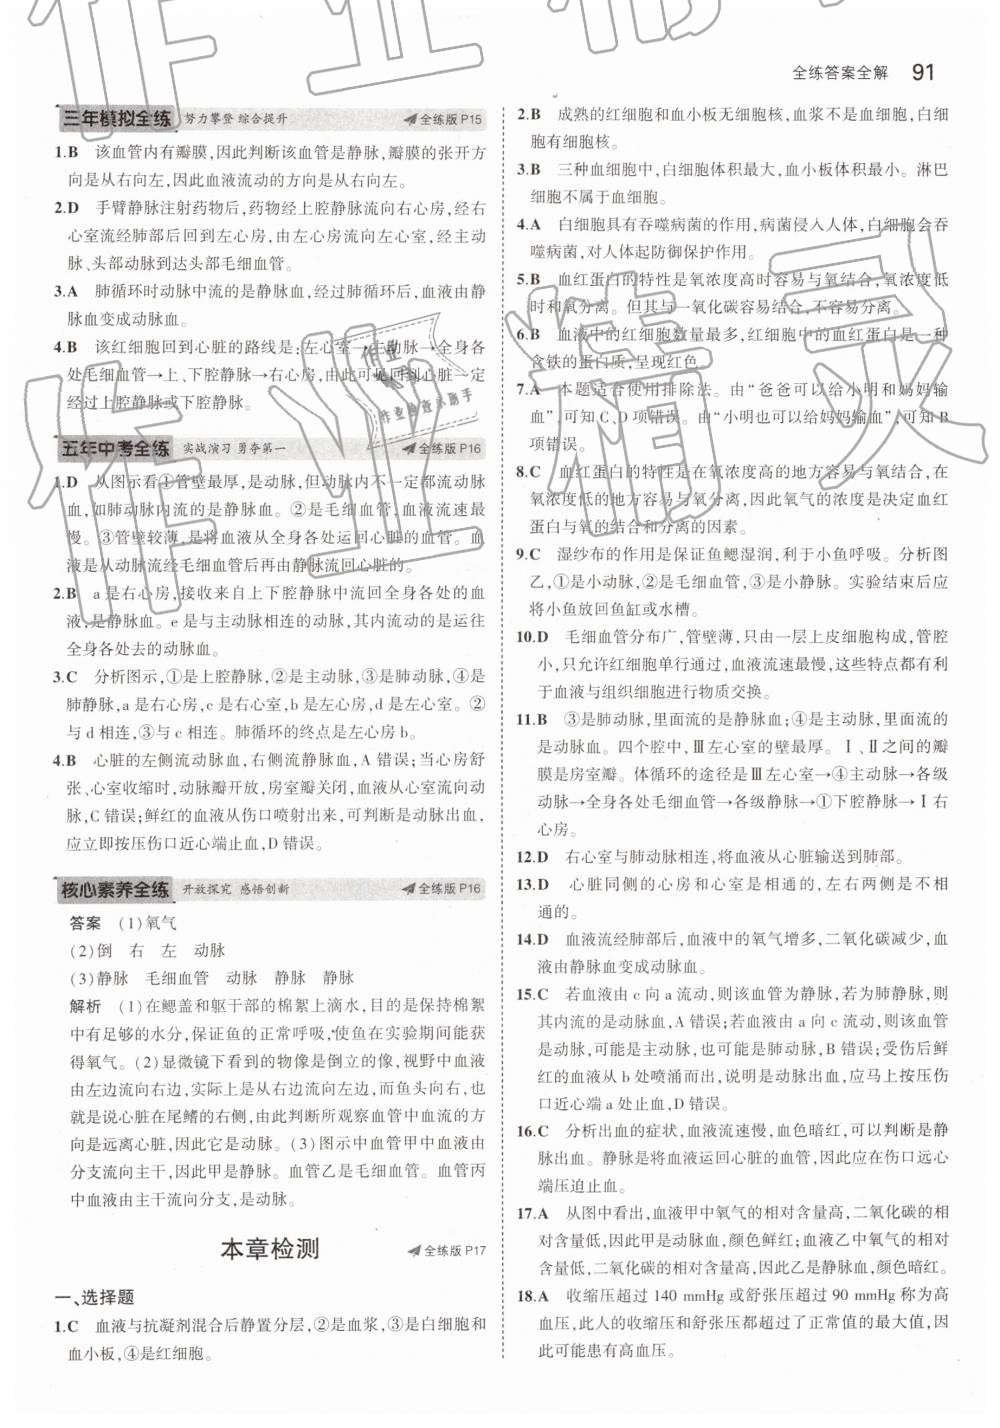 全练答案全解 91
三年模拟全练 努力攀登 综合提升 全练版 P15
1.B 该血管内有瓣膜,因此判断该血管是静脉,瓣膜的张开方
向是从右向左,因此血液流动的方向是从右向左。
2.D 手臂静脉注射药物后,药物经上腔静脉流向右心房,经右
心室流经肺部后回到左心房,由左心房流向左心室,经主动
脉、头部动脉到达头部毛细血管。
3.A 肺循环时动脉中流的是静脉血,经过肺循环后,血液由静
脉血变成动脉血。
4.B 该红细胞回到心脏的路线是:左心室→主动脉→全身各
处毛细血管→上、下腔静脉→右心房,由此可见回到心脏一定
经过上腔静脉或下腔静脉。
五年中考全练 实战演习 勇夺第一 全练版 P16
1.D 从图示看①管壁最厚,是动脉,但动脉内不一定都流动脉
血,如肺动脉内流的是静脉血。②是毛细血管,血液流速最
慢。③管壁较薄,是将血液从全身各处运回心脏的血管。血
液是从动脉流经毛细血管后再由静脉流回心脏的。
2.B a是右心房,接收来自上下腔静脉中流回全身各处的血
液,是静脉血。e是与主动脉相连的动脉,其内流动的是运往
全身各处去的动脉血。
3.C 分析图示,①是上腔静脉,②是主动脉,③是肺动脉,④是
肺静脉,a是右心房,c是右心室,b是左心房,d是左心室。②
与d相连,③与c相连。肺循环的终点是左心房b。
4.B 心脏的左侧流动脉血,右侧流静脉血,A错误;当心房舒
张、心室收缩时,动脉瓣开放,房室瓣关闭,血液从心室流向动
脉,C错误;鲜红的血液从伤口喷射出来,可判断是动脉出血,
应立即按压伤口近心端止血,D错误。
核心素养全练 开放探究 感悟创新 全练版 P16
答案 (1)氧气
(2)倒 右 左 动脉
(3)静脉 毛细血管 动脉 静脉 静脉
解析 (1)在鳃盖和躯干部的棉絮上滴水,目的是保持棉絮
中有足够的水分,保证鱼的正常呼吸,使鱼在实验期间能获
得氧气。(2)显微镜下看到的物像是倒立的像,视野中血液
由左边流向右边,实际上是从右边流向左边,而鱼头向右,也
就是说心脏在尾鳍的右侧,由此判断所观察血管中血流的方
向是远离心脏,因此它是动脉。(3)图示中血管甲中血液由
分支流向主干,因此甲是静脉。血管乙是毛细血管。血管丙
中血液由主干流向分支,是动脉。
本章检测 全练版 P17
一、选择题
1.C 血液与抗凝剂混合后静置分层,②是血浆,③是白细胞和
血小板,④是红细胞。
2.B 成熟的红细胞和血小板无细胞核,血浆不是血细胞,白细
胞有细胞核。
3.B 三种血细胞中,白细胞体积最大,血小板体积最小。淋巴
细胞不属于血细胞。
4.A 白细胞具有吞噬病菌的作用,病菌侵入人体,白细胞会吞
噬病菌,对人体起防御保护作用。
5.B 血红蛋白的特性是氧浓度高时容易与氧结合,氧浓度低
时和氧分离。但其与一氧化碳容易结合,不容易分离。
6.B 血液中的红细胞数量最多,红细胞中的血红蛋白是一种
含铁的蛋白质,呈现红色。
7.A 本题适合使用排除法。由“爸爸可以给小明和妈妈输
血”,可知C、D项错误。由“小明也可以给妈妈输血”,可知B
项错误。
8.C 血红蛋白的特性是在氧浓度高的地方容易与氧结合,在
氧浓度低的地方容易与氧分离,因此氧气的浓度是决定血红
蛋白与氧的结合和分离的因素。
9.C 湿纱布的作用是保证鱼鳃湿润,利于小鱼呼吸。分析图
乙,①是小动脉,②是毛细血管,③是小静脉。实验结束后应
将小鱼放回鱼缸或水槽。
10.D 毛细血管分布广,管壁薄,只由一层上皮细胞构成,管腔
小,只允许红细胞单行通过,血液流速最慢,这些特点都有利
于血液与组织细胞进行物质交换。
11.B ③是肺动脉,里面流的是静脉血;④是主动脉,里面流的
是动脉血。四个腔中,Ⅲ左心室的壁最厚。Ⅰ、Ⅱ之间的瓣
膜是房室瓣。体循环的途径是Ⅲ左心室→④主动脉→各级
动脉→全身各处毛细血管→各级静脉→①下腔静脉→Ⅰ右
心房。
12.D 右心室与肺动脉相连,将血液从心脏输送到肺部。
13.D 心脏同侧的心房和心室是相通的,左、右侧是不相
通的。
14.D 血液流经肺部后,血液中的氧气增多,二氧化碳减少,血
液由静脉血变成动脉血。
15.C 若血液由c向a流动,则该血管为静脉,若为肺静脉,则
其内流的是动脉血,A错误;若血液由a向c流动,则该血管
是动脉,可能是主动脉,也可能是肺动脉,B错误;受伤后鲜
红的血液从b处喷涌而出,说明是动脉出血,应马上按压伤
口近心端a处止血,D错误。
16.C 分析出血的症状,血液流速慢,血色暗红,可以判断是静
脉出血。静脉是将血液运回心脏的血管,因此应在伤口远心
端压迫止血。
17.A 从图中看出,血液甲中氧气的相对含量高,二氧化碳的相
对含量低,因此甲为动脉血,颜色鲜红;血液乙中氧气的相对
含量低,二氧化碳的相对含量高,因此乙是静脉血,颜色暗红。
18.A 收缩压超过 140 mmHg 或舒张压超过 90 mmHg 称为高
血压,此人的收缩压和舒张压都超过了正常值的最大值,因
此可能患有高血压。